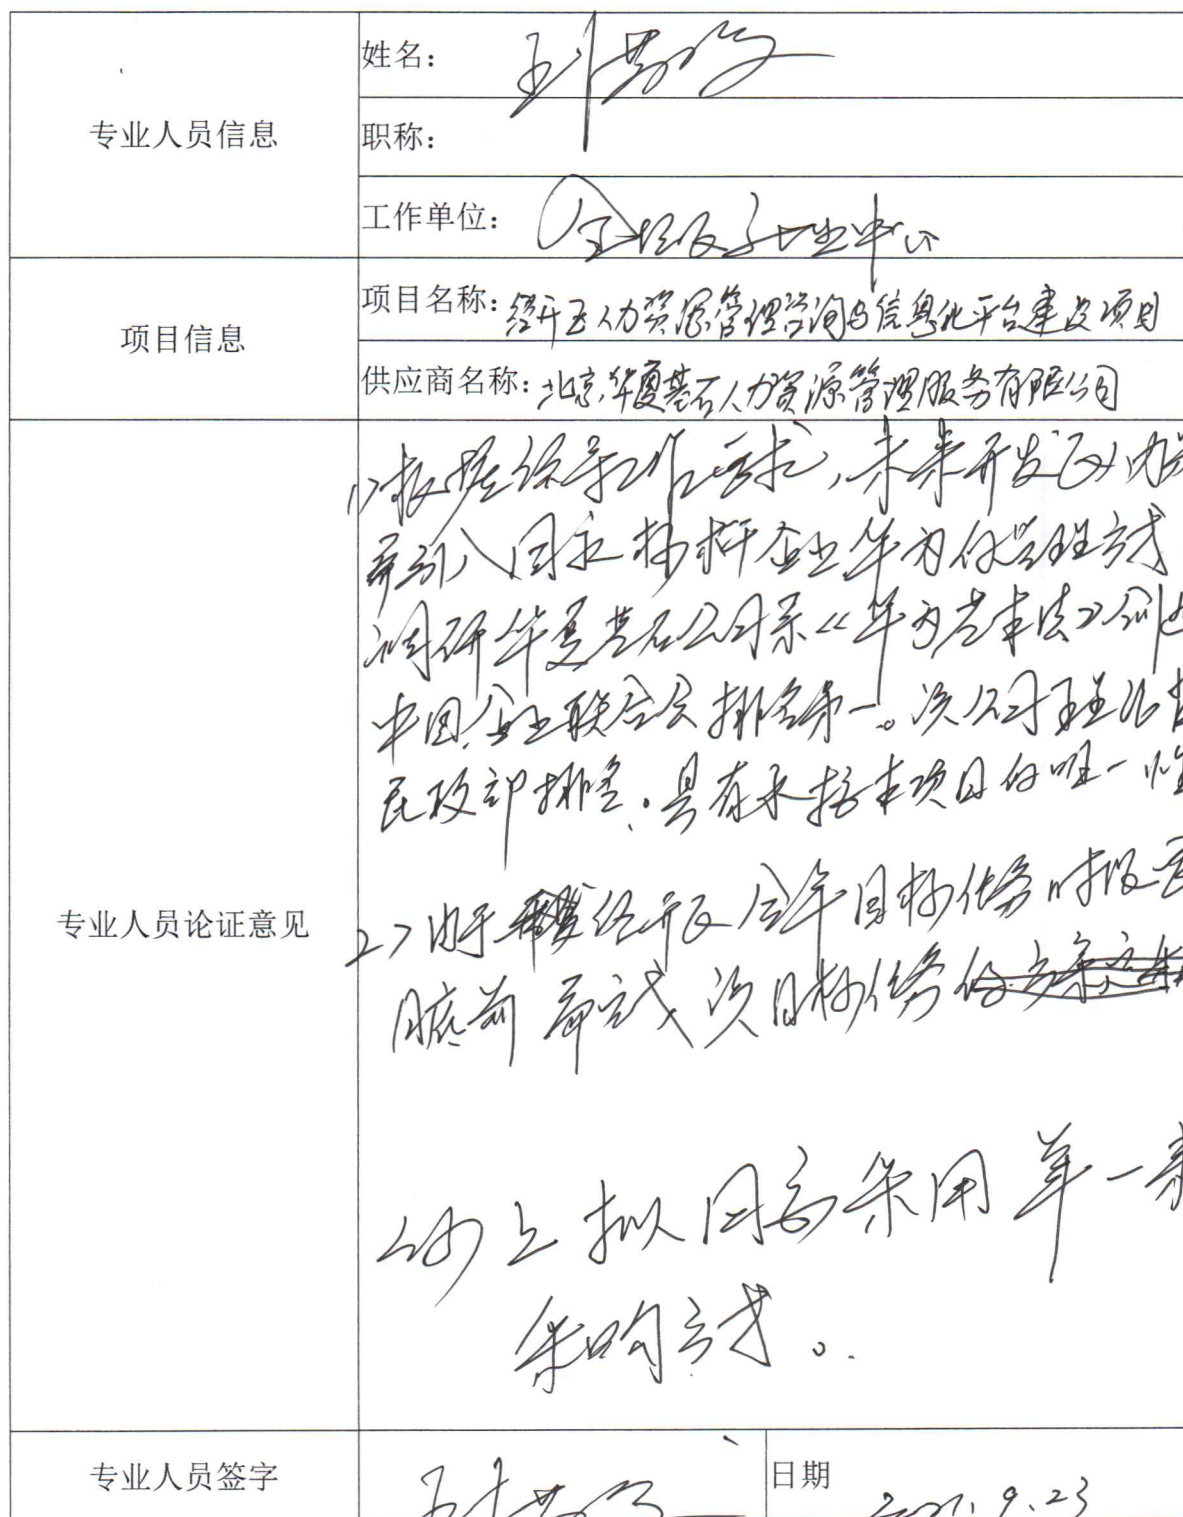 专业人员信息
姓名:
职称:
工作单位:
项目信息
项目名称: 经开区人力资源管理咨询与信息化平台建设项目
供应商名称: 北京华夏基石人力资源管理服务有限公司
专业人员论证意见
1)根据领导工作要求,未来开发区
引入国家标杆企业华为的管理方式
调研华夏基石公司系《华为基本法》创
中国企业联合会排名第一。该公司
民政部排名。具有承接本项目的唯一性
2)由于经开区全年目标任务时限
月底前需完成该目标任务
综上拟同意采用单一来
采购方式。
专业人员签字
日期 2021.9.23